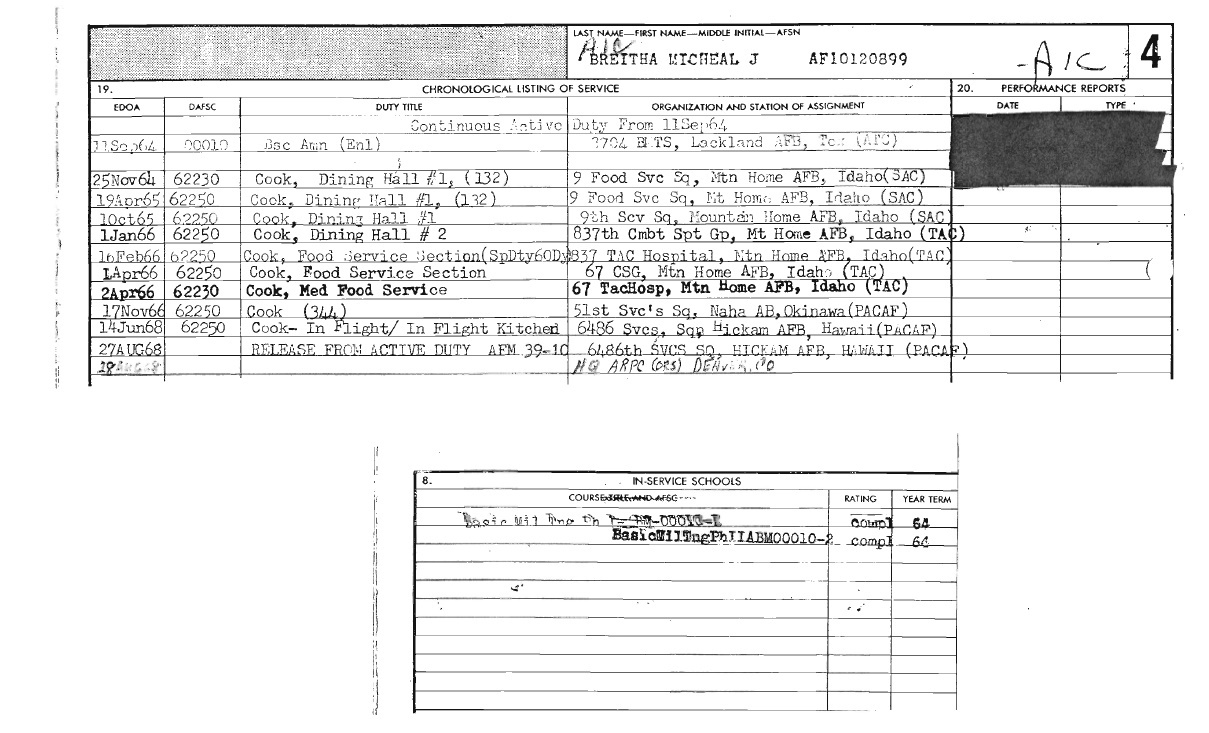 LAST NAME—FIRST NAME—MIDDLE INITIAL—AFSN
A1C
BREITHA MICHEAL J AF10120899
-A1C
4
19. CHRONOLOGICAL LISTING OF SERVICE 20. PERFORMANCE REPORTS
EDOA DAFSC DUTY TITLE ORGANIZATION AND STATION OF ASSIGNMENT DATE TYPE
Continuous Active Duty From 11Sep64
11Sep64 00010 Bsc Amn (Enl) 3704 BMTS, Lackland AFB, Tex (ATC)
25Nov64 62230 Cook, Dining Hall #1, (132) 9 Food Svc Sq, Mtn Home AFB, Idaho(SAC)
19Apr65 62250 Cook, Dining Hall #1, (132) 9 Food Svc Sq, Mt Home AFB, Idaho (SAC)
1Oct65 62250 Cook, Dining Hall #1 9th Scv Sq, Mountain Home AFB, Idaho (SAC)
1Jan66 62250 Cook, Dining Hall # 2 837th Cmbt Spt Gp, Mt Home AFB, Idaho (TAC)
16Feb66 62250 Cook, Food Service Section(SpDty60Dy) 837 TAC Hospital, Mtn Home AFB, Idaho(TAC)
1Apr66 62250 Cook, Food Service Section 67 CSG, Mtn Home AFB, Idaho (TAC)
2Apr66 62230 Cook, Med Food Service 67 TacHosp, Mtn Home AFB, Idaho (TAC)
17Nov66 62250 Cook (344) 51st Svc's Sq, Naha AB,Okinawa(PACAF)
14Jun68 62250 Cook- In Flight/ In Flight Kitched 6486 Svcs, Sq, Hickam AFB, Hawaii(PACAF)
27AUG68 RELEASE FROM ACTIVE DUTY AFM 39-10 6486th SVCS SQ, HICKAM AFB, HAWAII (PACAF)
HQ ARPC (ORS) DENVER, CO
8. IN-SERVICE SCHOOLS
COURSE TITLE AND AFSC RATING YEAR TERM
Basic Mil Tng Ph compl 64
BasicMilTngPhIIABM00010-2 compl 64